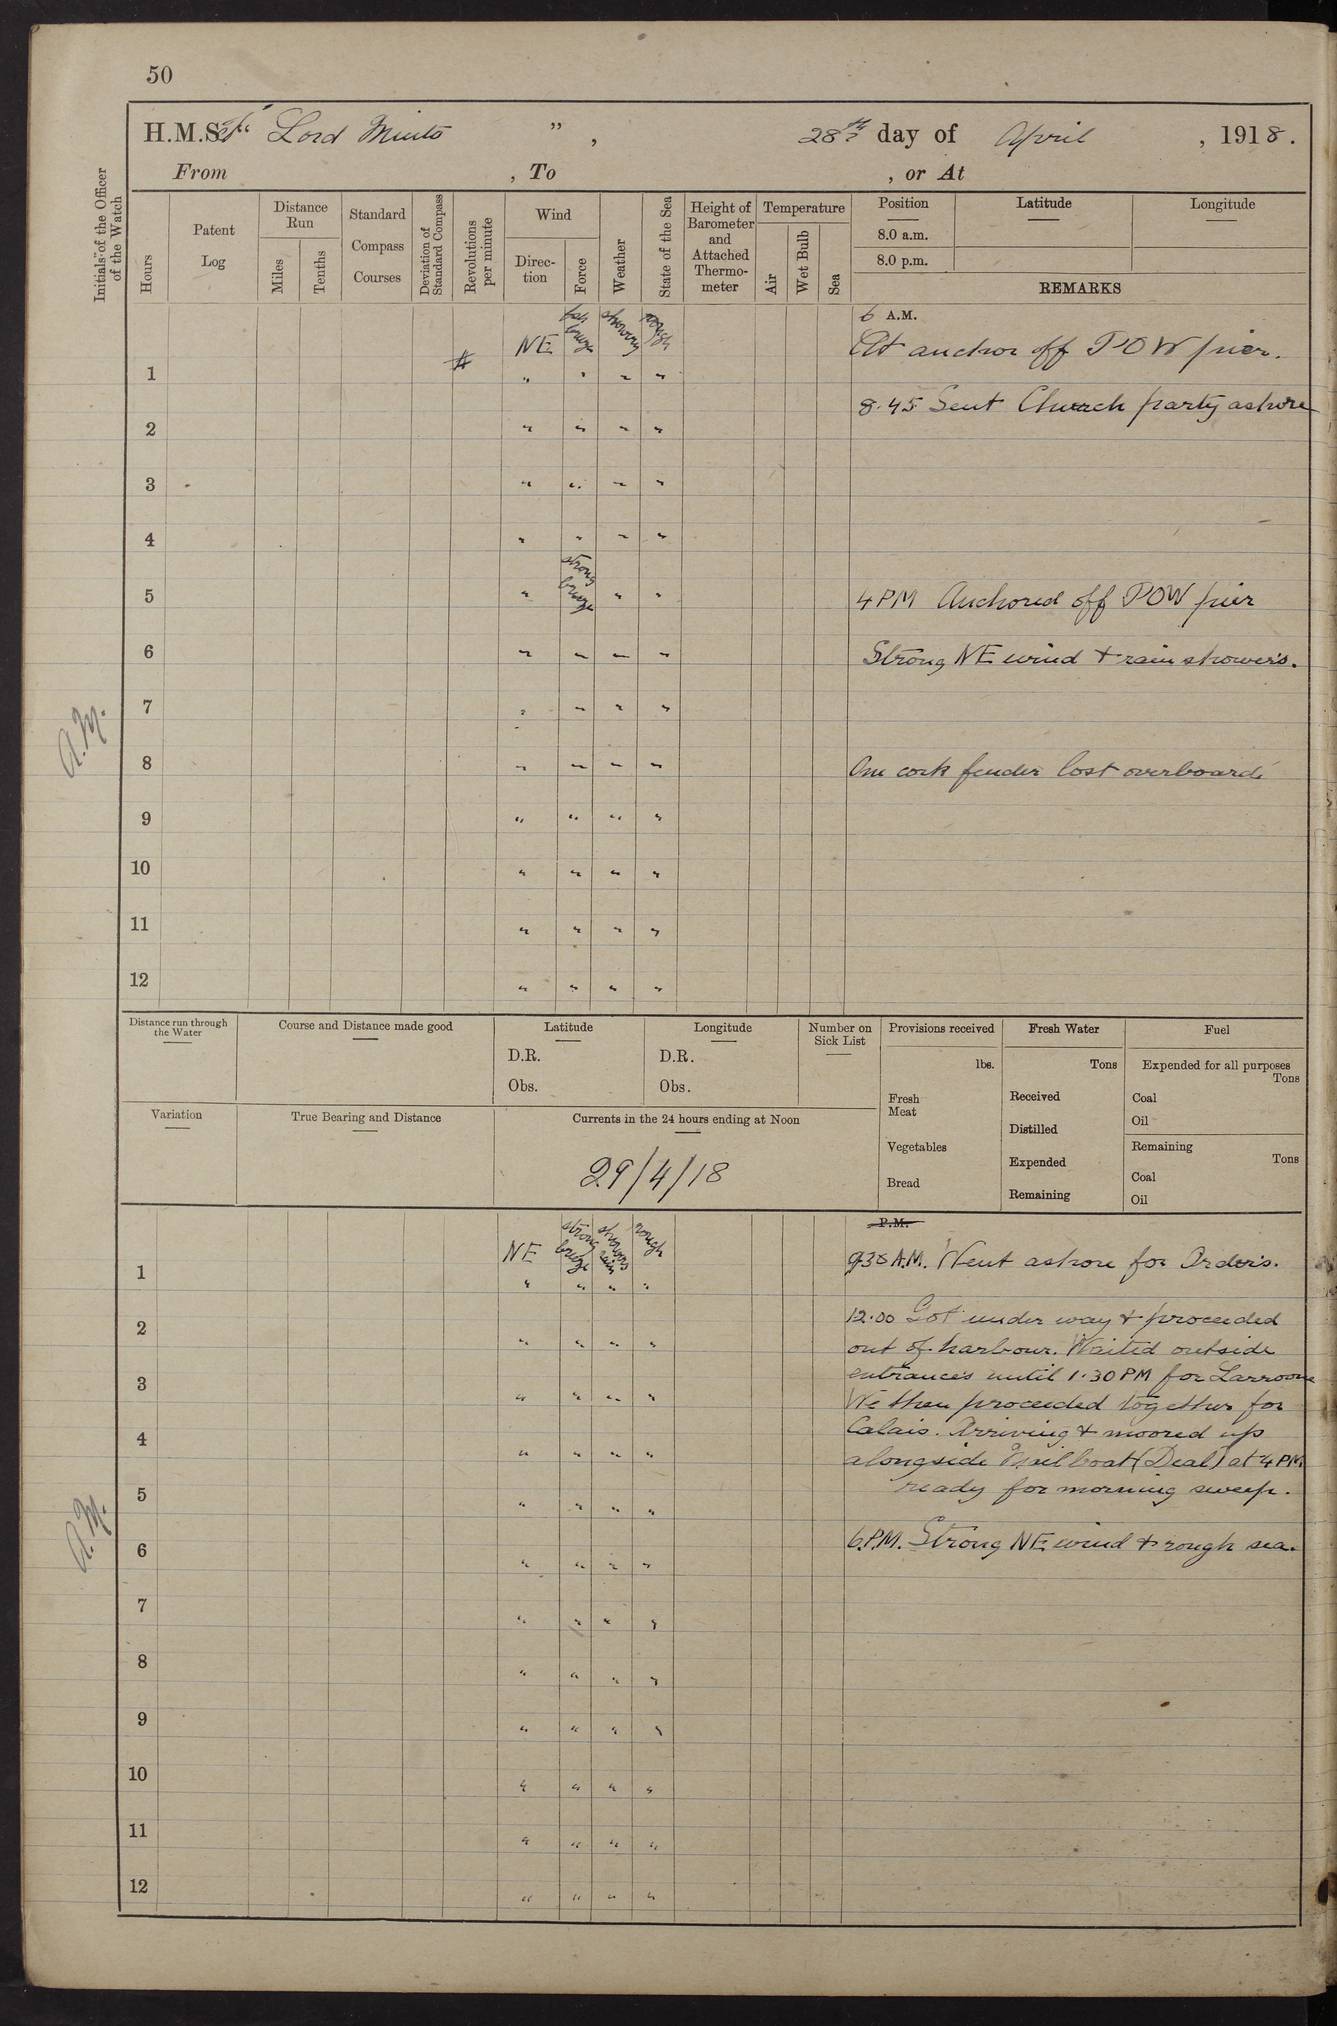 50
H.M.S. Lord Minto ” , 28th day of April , 1918.
From , To , or At
Initials of the Officer of the Watch
Hours
Patent Log
Distance Run
Miles
Tenths
Standard Compass Courses
Deviation of Standard Compass
Revolutions per minute
Wind
Direction
Force
Weather
State of the Sea
Height of Barometer and Attached Thermometer
Temperature
Air
Wet Bulb
Sea
Position
8.0 a.m.
8.0 p.m.
Latitude
Longitude
REMARKS
6 A.M.
# NE breeze showery rough
At anchor off POW pier.
1 " " " "
8.45 Sent Church party ashore
2 " " " "
3 " " " "
4 " " " "
strong breeze
5 " " "
4 PM Anchored off POW pier
6 " " " "
Strong NE wind & rain showers.
7 " " " "
A.M.
8 " " " "
One cork fender lost overboard
9 " " " "
10 " " " "
11 " " " "
12 " " " "
Distance run through the Water
Course and Distance made good
Latitude
D.R.
Obs.
Longitude
D.R.
Obs.
Number on Sick List
Provisions received
lbs.
Fresh Meat
Vegetables
Bread
Fresh Water
Tons
Received
Distilled
Expended
Remaining
Fuel
Expended for all purposes
Tons
Coal
Oil
Remaining
Tons
Coal
Oil
Variation
True Bearing and Distance
Currents in the 24 hours ending at Noon
29/4/18
P.M.
NE strong breeze showers rain rough
9.30 A.M. Went ashore for Orders.
1 " " " "
12.00 Got under way & proceeded
2 " " " "
out of harbour. Waited outside
entrances until 1.30 PM for
3 " " " "
We then proceeded together for
Calais. Arriving & moored up
4 " " " "
alongside Mail boat (Deal) at 4 PM
ready for morning sweep.
5 " " " "
6.P.M. Strong NE wind & rough sea.
A.M.
6 " " " "
7 " " " "
8 " " " "
9 " " " "
10 " " " "
11 " " " "
12 " " " "